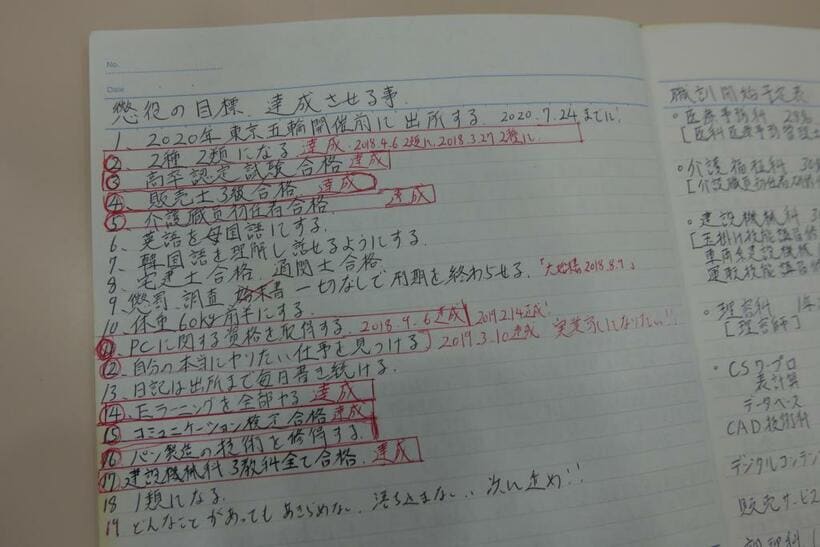 No.
Date
懲役の目標、達成させる事、
1、2020年東京五輪開催前に出所する、2020.7.24までに!
②、2種 2類になる 達成 2018.4.6 2類に、2018.3.27 2種に、
③、高卒認定試験合格 達成
④、販売士3級合格、達成
⑤、介護職員初任者合格、達成
6、英語を母国語にする、
7、韓国語を理解し話せるようにする、
8、宅建士合格、通関士合格
9、懲罰、調査、始末書 一切なしで刑期を終わらせる、
10、体重60kg前半にする、
⑪、PCに関する資格を取得する、2018.9.6達成 2019.2.14達成!
⑫、自分の本当にやりたい仕事を見つける 2019.3.10達成 実業家になりたい!!
13、日記は出所まで毎日書き続ける、
⑭、Eラーニングを全部やる 達成
⑮、コミュニケーション検定合格 達成
⑯、パン製造の技術を修得する、
⑰、建設機械科3教科全て合格、達成
18 1類になる、
19 どんなことがあってもあきらめない、落ち込まない、次に進め!!
職訓開始予定表
・医療事務科
[医科医療事務管理士
・介護福祉科
[介護職員初任者研修
・建設機械科
[玉掛け技能講習
車両系建設機械
運転技能講習
・理容科
[理容師]
・CSワープロ
表計算
データベース
CAD技術科
デジタルコンテン
販売サービス
調理科